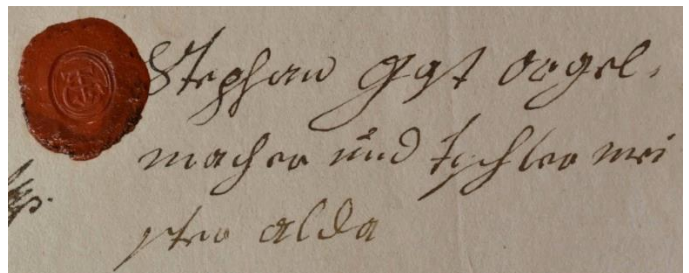 Stephan orgel-
macher und tyschler mei
ster alda